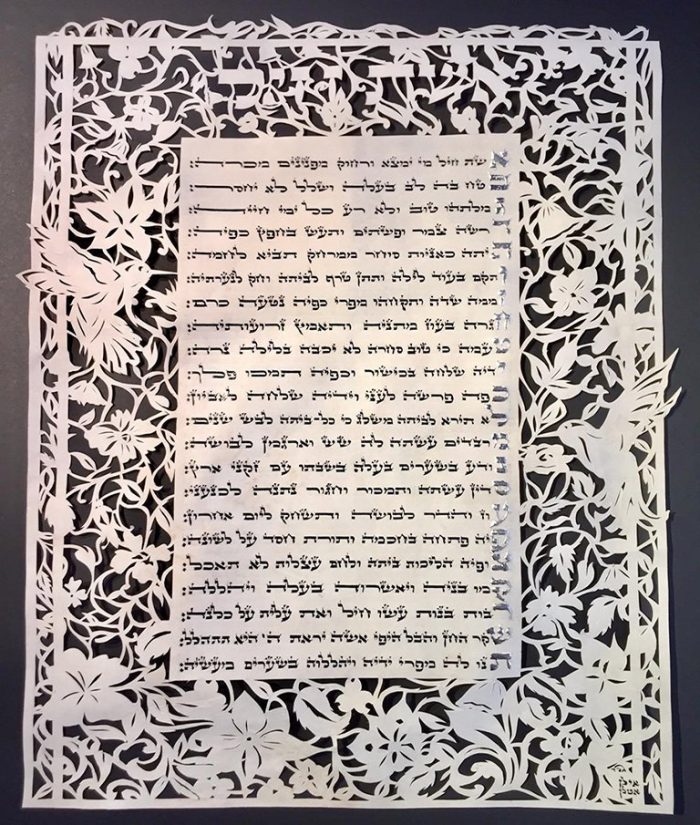 אשת חיל מי ימצא ורחוק מפנינים מכרה:
בטח בה לב בעלה ושלל לא יחסר:
גמלתהו טוב ולא רע כל ימי חייה:
דרשה צמר ופשתים ותעש בחפץ כפיה:
היתה כאניות סוחר ממרחק תביא לחמה:
ותקם בעוד לילה ותתן טרף לביתה וחק לנערתיה:
זממה שדה ותקחהו מפרי כפיה נטעה כרם:
חגרה בעוז מתניה ותאמץ זרועותיה:
טעמה כי טוב סחרה לא יכבה בלילה נרה:
ידיה שלחה בכישור וכפיה תמכו פלך:
כפה פרשה לעני וידיה שלחה לאביון:
לא תירא לביתה משלג כי כל-ביתה לבש שנים:
מרבדים עשתה לה שש וארגמן לבושה:
נודע בשערים בעלה בשבתו עם זקני ארץ:
סדין עשתה ותמכור וחגור נתנה לכנעני:
עז והדר לבושה ותשחק ליום אחרון:
פיה פתחה בחכמה ותורת חסד על לשונה:
צופיה הליכות ביתה ולחם עצלות לא תאכל:
קמו בניה ויאשרוה בעלה ויהללה:
רבות בנות עשו חיל ואת עלית על כלנה:
שקר החן והבל היפי אשה יראת ה' היא תתהלל:
תנו לה מפרי ידיה ויהללוה בשערים מעשיה: